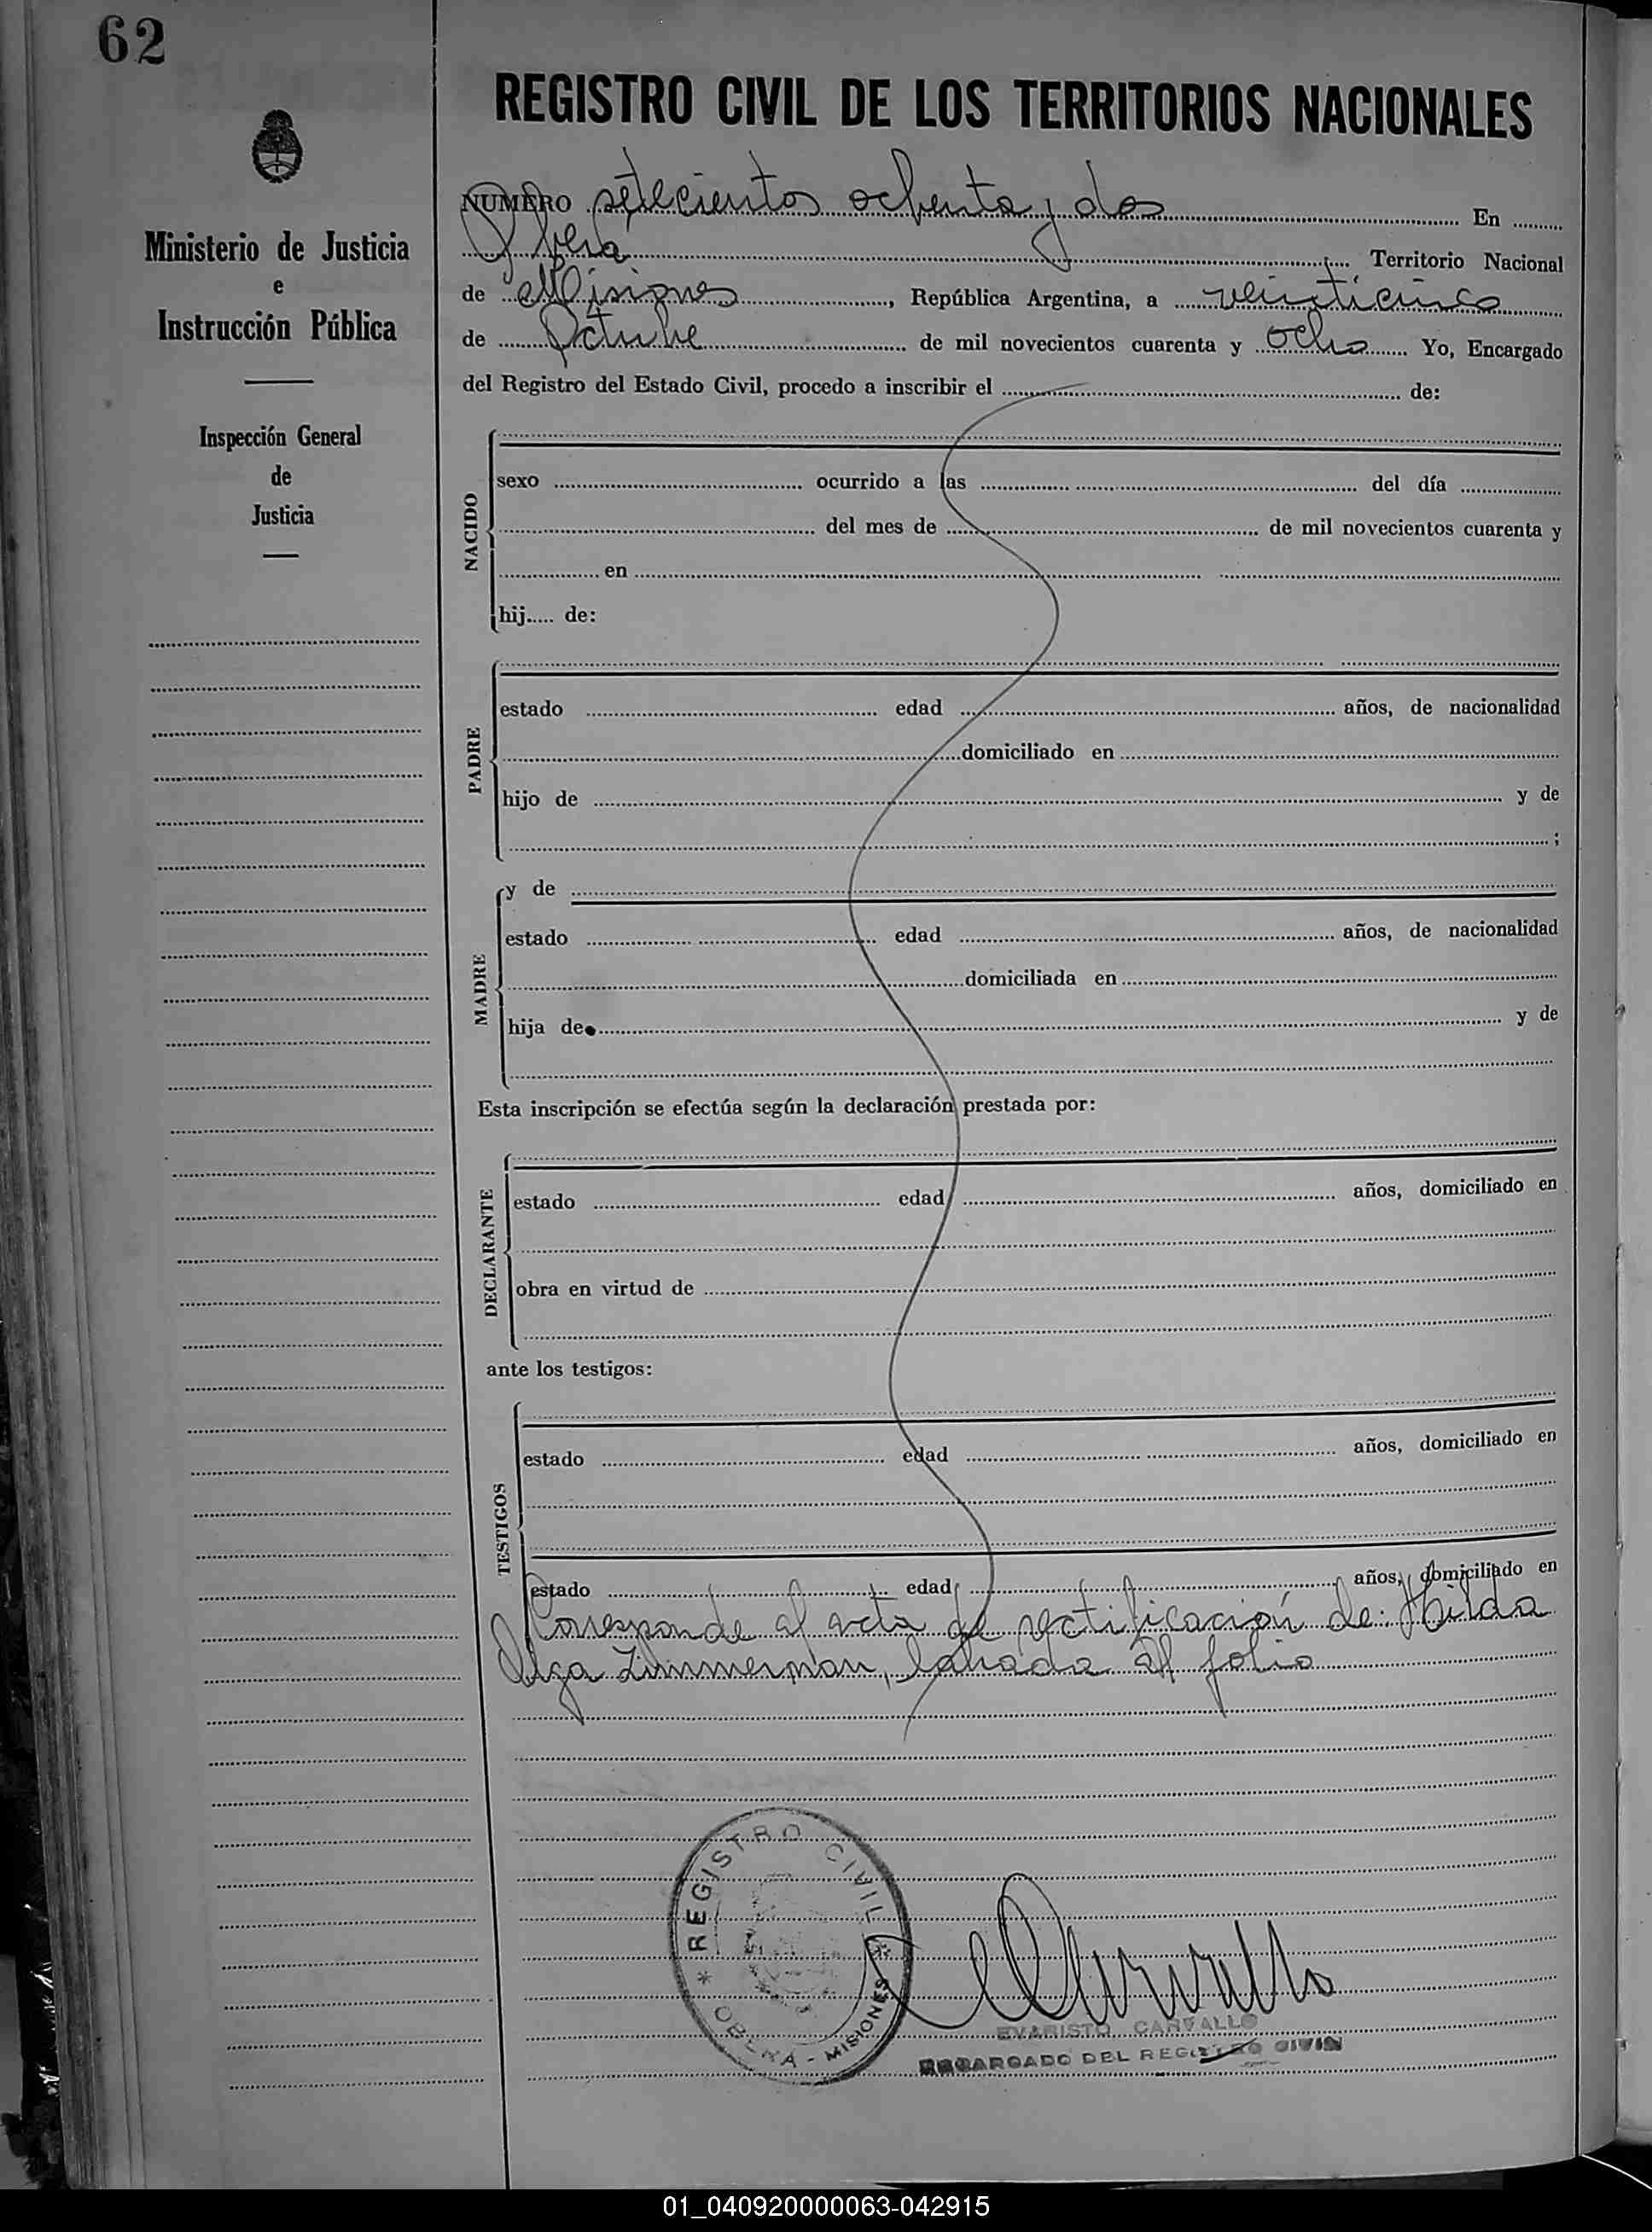 62
REGISTRO CIVIL DE LOS TERRITORIOS NACIONALES
Ministerio de Justicia
e
Instrucción Pública
Inspección General
de
Justicia
NUMERO setecientos ochenta y dos En
Obera Territorio Nacional
de Misiones, República Argentina, a veinticinco
de Octubre de mil novecientos cuarenta y ocho Yo, Encargado
del Registro del Estado Civil, procedo a inscribir el de:
NACIDO
sexo ocurrido a las del día
del mes de de mil novecientos cuarenta y
en
hij..... de:
PADRE
estado edad años, de nacionalidad
domiciliado en
hijo de y de
;
MADRE
y de
estado edad años, de nacionalidad
domiciliada en
hija de y de
Esta inscripción se efectúa según la declaración prestada por:
DECLARANTE
estado edad años, domiciliado en
obra en virtud de
ante los testigos:
TESTIGOS
estado edad años, domiciliado en
estado edad años, domiciliado en
Corresponde al acta de rectificación de: Hilda
Olga Zimmerman, labrada al folio
REGISTRO CIVIL
OBERA - MISIONES
EVARISTO CARVALLO
ENCARGADO DEL REGISTRO CIVIL
01_040920000063-042915